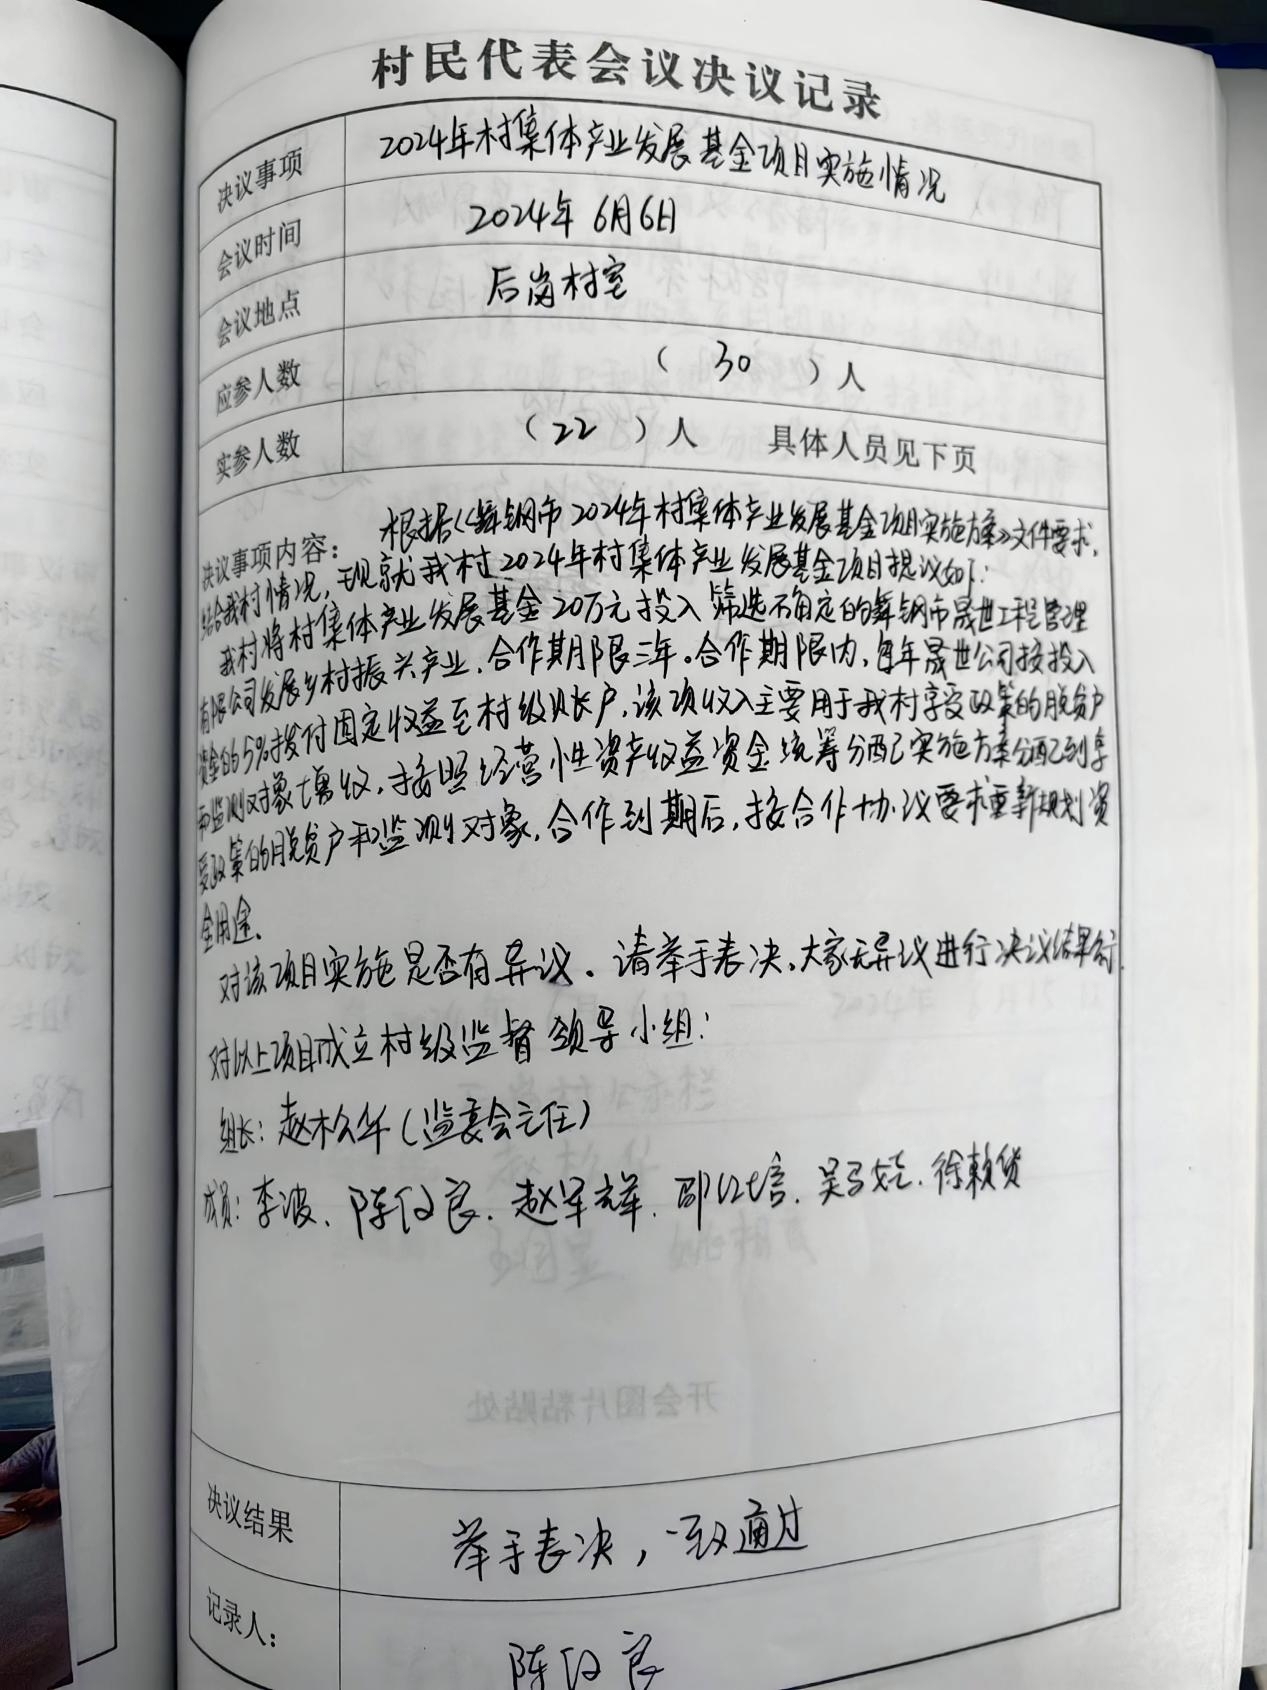 村民代表会议决议记录
决议事项 2024年村集体产业发展基金项目实施情况
会议时间 2024年6月6日
会议地点 后岗村室
应参人数 （ 30 ）人
实参人数 （ 22 ）人 具体人员见下页
决议事项内容： 根据《舞钢市2024年村集体产业发展基金项目实施方案》文件要求，
结合我村情况，现就我村2024年村集体产业发展基金项目提议如下：
我村将村集体产业发展基金20万元投入筛选不确定的舞钢市晟世工程管理
有限公司发展乡村振兴产业，合作期限三年。合作期限内，每年晟世公司按投入
资金的5%拨付固定收益至村级账户，该项收入主要用于我村享受政策的脱贫户
和监测对象增收，按照经营性资产收益资金统筹分配实施方案分配到享
受政策的脱贫户和监测对象，合作到期后，按合作协议要求重新规划资
金用途。
对该项目实施是否有异议。请举手表决，大家无异议进行决议结果
对以上项目成立村级监督领导小组：
组长：赵松年（监委会主任）
成员：李波、陈 良、赵军 、邵 信、吴 、徐 货
决议结果 举手表决，一致通过
记录人： 陈 良
开会图片粘贴处